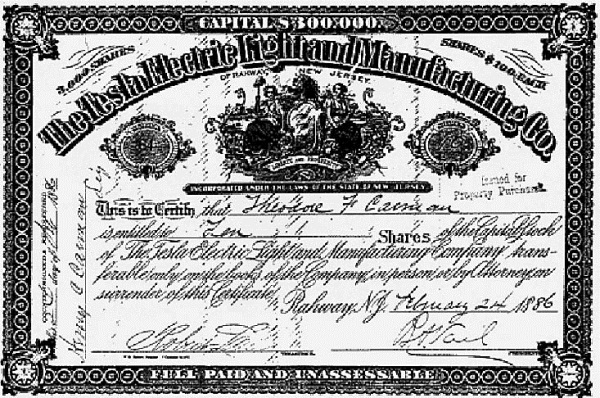 CAPITAL $300,000.
3,000 SHARES
SHARES $100 EACH
The Tesla Electric Light and Manufacturing Co.
OF RAHWAY NEW JERSEY.
LIBERTY AND PROSPERITY
INCORPORATED UNDER THE LAWS OF THE STATE OF NEW JERSEY
Issued for
Property Purchased
This is to Certify that Theodore F
is entitled to Ten Shares of the Capital Stock
of The Tesla Electric Light and Manufacturing Company trans-
ferable only on the books of the Company, in person, or by Attorney, on
surrender of this Certificate,
Rahway, N.J. February 24 1886
FULL PAID AND UNASSESSABLE